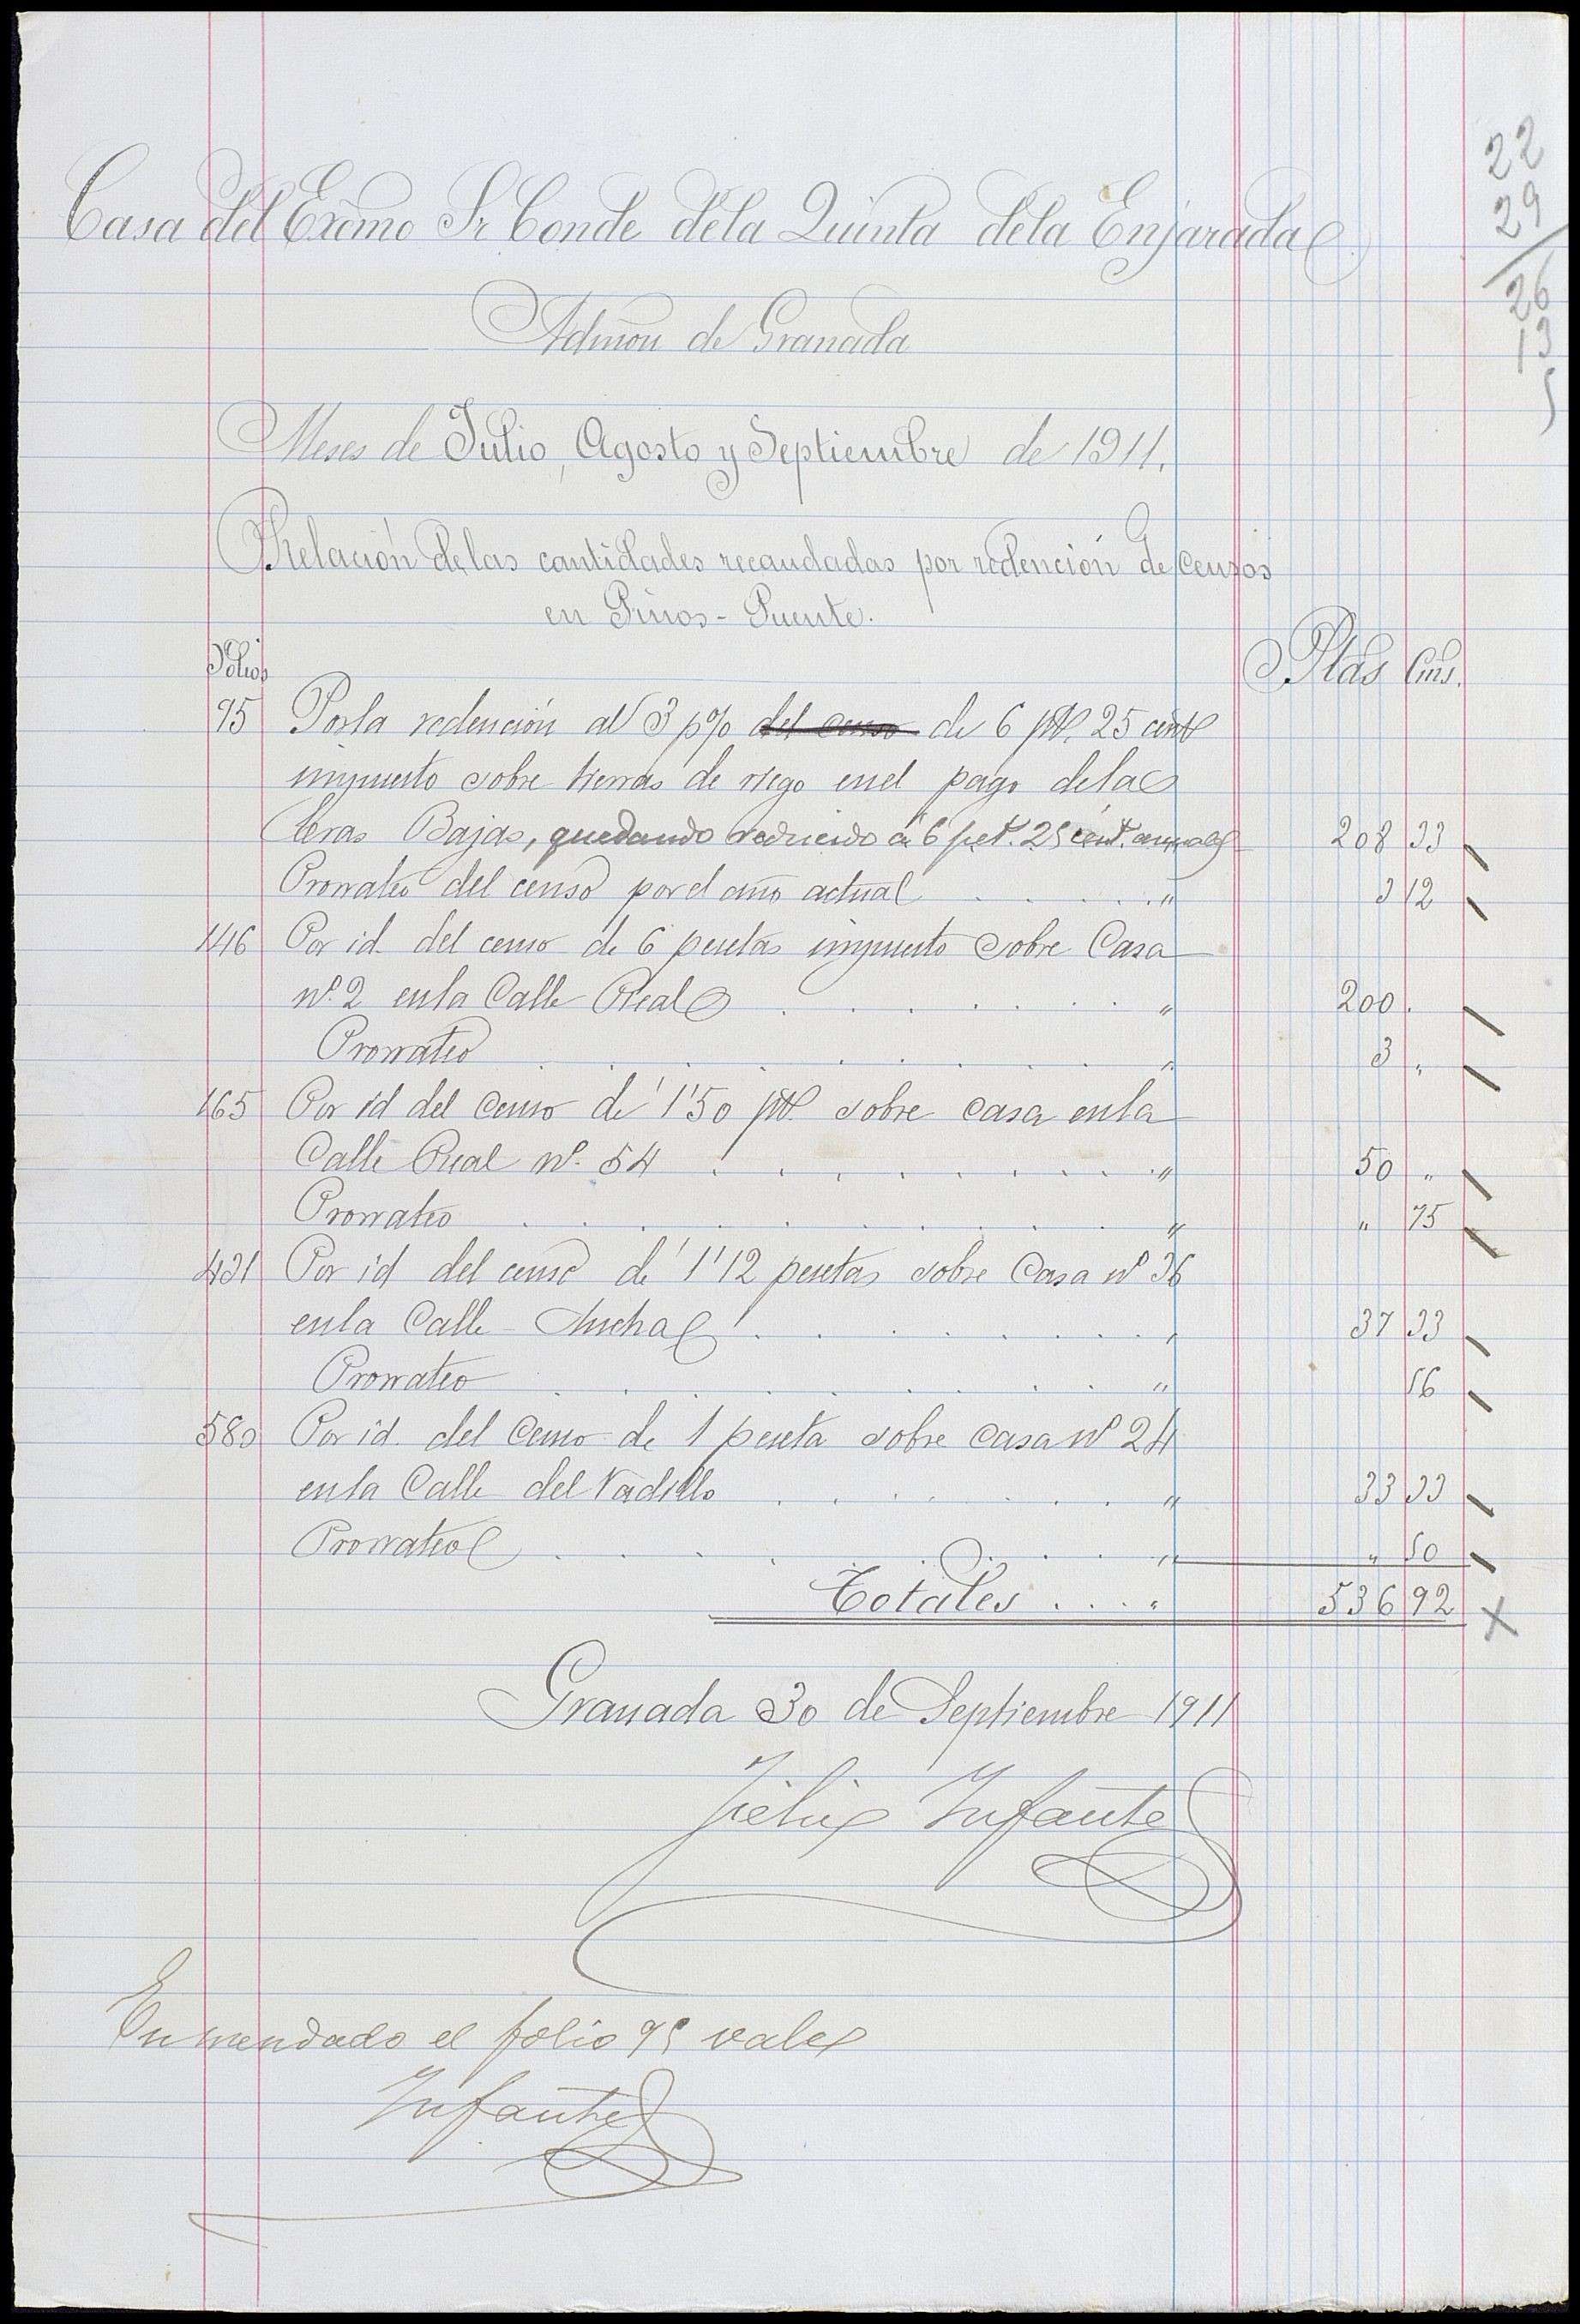 Casa del Excmo Sr Conde dela Quinta dela Enjarada
Admon de Granada
Meses de Julio, Agosto y Septiembre de 1911.
Relación de las cantidades recaudadas por redención de censos
en Pinos-Puente.
Folios Ptas Cms.
95 Porla redención al 3 p% del censo de 6 ptˢ. 25 cénts
impuesto sobre tierras de riego enel pago delas
Eras Bajas, quedando reducido á 6 pet. 25 cent. anuales 208 33
Prorrateo del censo por el año actual . . . . . " 3 12
146 Por id. del censo de 6 pesetas impuesto sobre Casa
nº. 2 enla Calle Real . . . . . . . " 200 .
Prorrateo . . . . . . . . . . " 3 "
165 Por id del Censo de 1'50 ptˢ. sobre casa enla
Calle Real nº. 54 . . . . . . . . . " 50 "
Prorrateo . . . . . . . . . . . " " 75
431 Por id del censo de 1'12 pesetas sobre Casa nº 36
enla Calle Ancha . . . . . . . . " 37 33
Prorrateo . . . . . . . . . " 56
580 Por id. del Censo de 1 peseta sobre casa nº 24
enla Calle del Vadillo . . . . . . . " 33 33
Prorrateo . . . . . . . . . " " 50
Totales . . . . " 536 92
Granada 30 de Septiembre 1911
Félix Infante
Enmendado el folio 95 vale
Infante
22
29
26
13